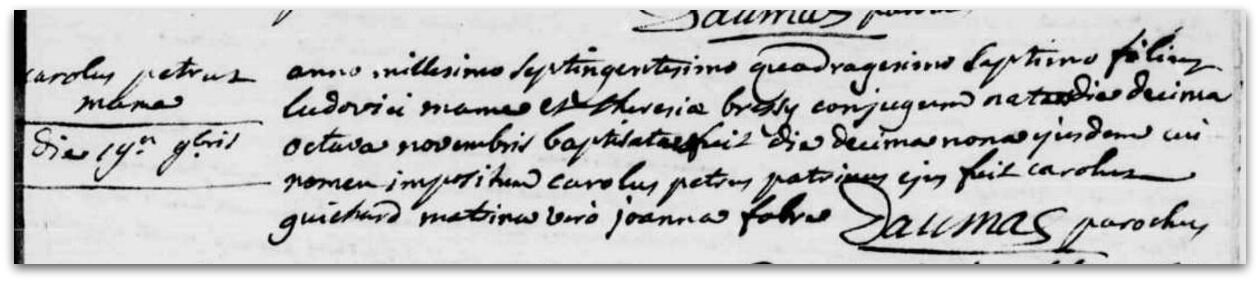 Daumas
carolus petrus
mame
die 19a 9bris
anno millesimo septingentesimo quadragesimo septimo filius
ludovici mame et theresiæ bressy conjugum natus die decima
octava novembris baptisatus fuit die decima nona ejusdem cui
nomen impositum carolus petrus patrinus ejus fuit carolus
guichard matrina vero joanna fabre Daumas parochus